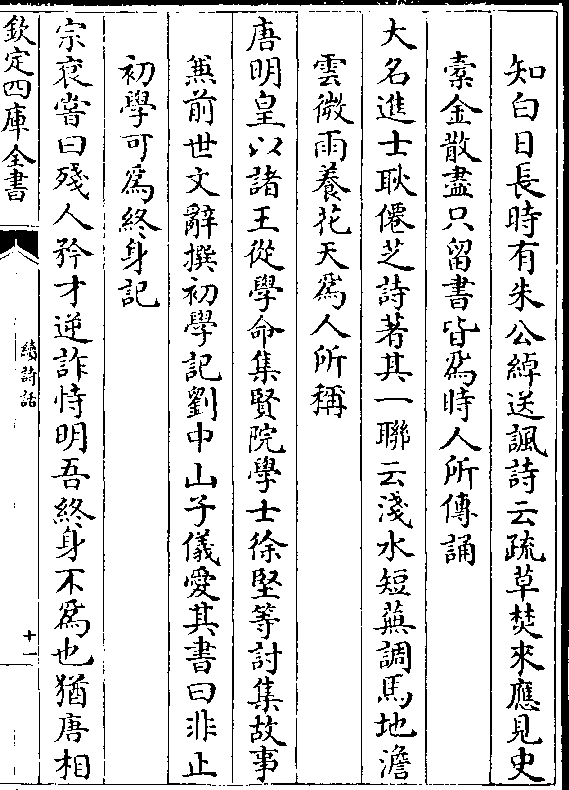 知白日長時有朱公綽送諷詩云疏草焚來應見史
橐金散盡只留書皆爲時人所傳誦
大名進士耿僊芝詩著其一聯云淺水短蕪調馬地澹
雲微雨養花天爲人所稱
唐明皇以諸王從學命集賢院學士徐堅等討集故事
兼前世文辭撰初學記劉中山子儀愛其書曰非止
初學可爲終身記
宗袞嘗曰殘人矜才逆詐恃明吾終身不爲也猶唐相
欽定四庫全書
續詩話
十一